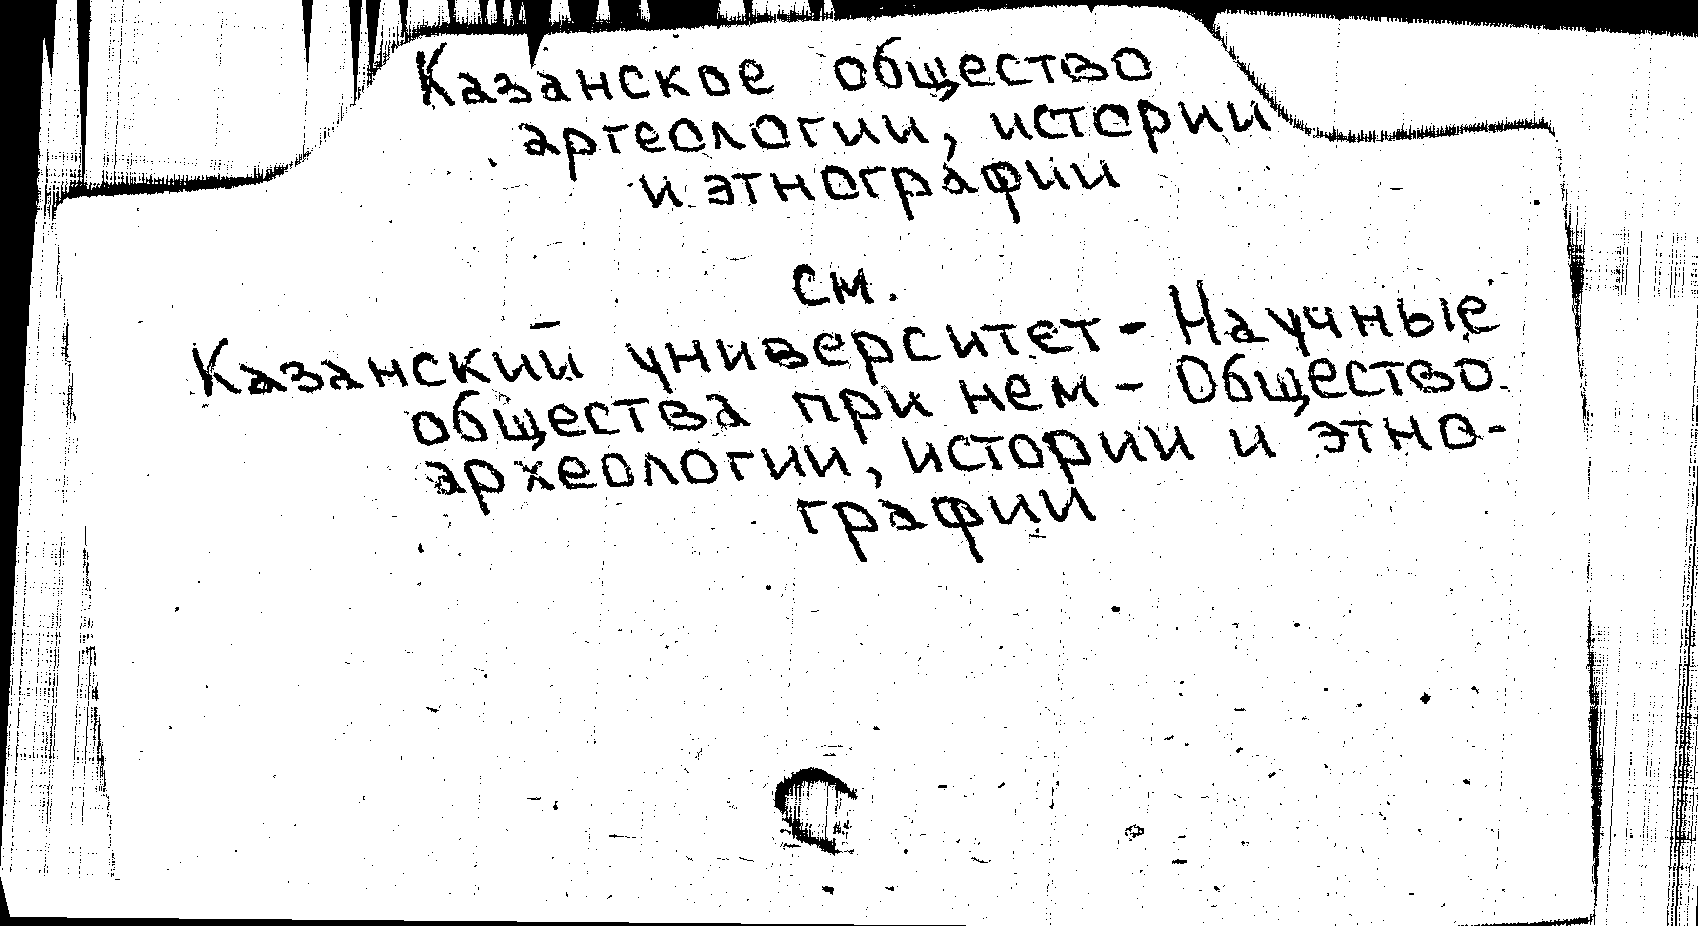 Казанское общество
аргеологии, истории
и этнографии
см.
Казанский университет - Научные
общества при нем - Общество
археологии, истории и этно-
графии